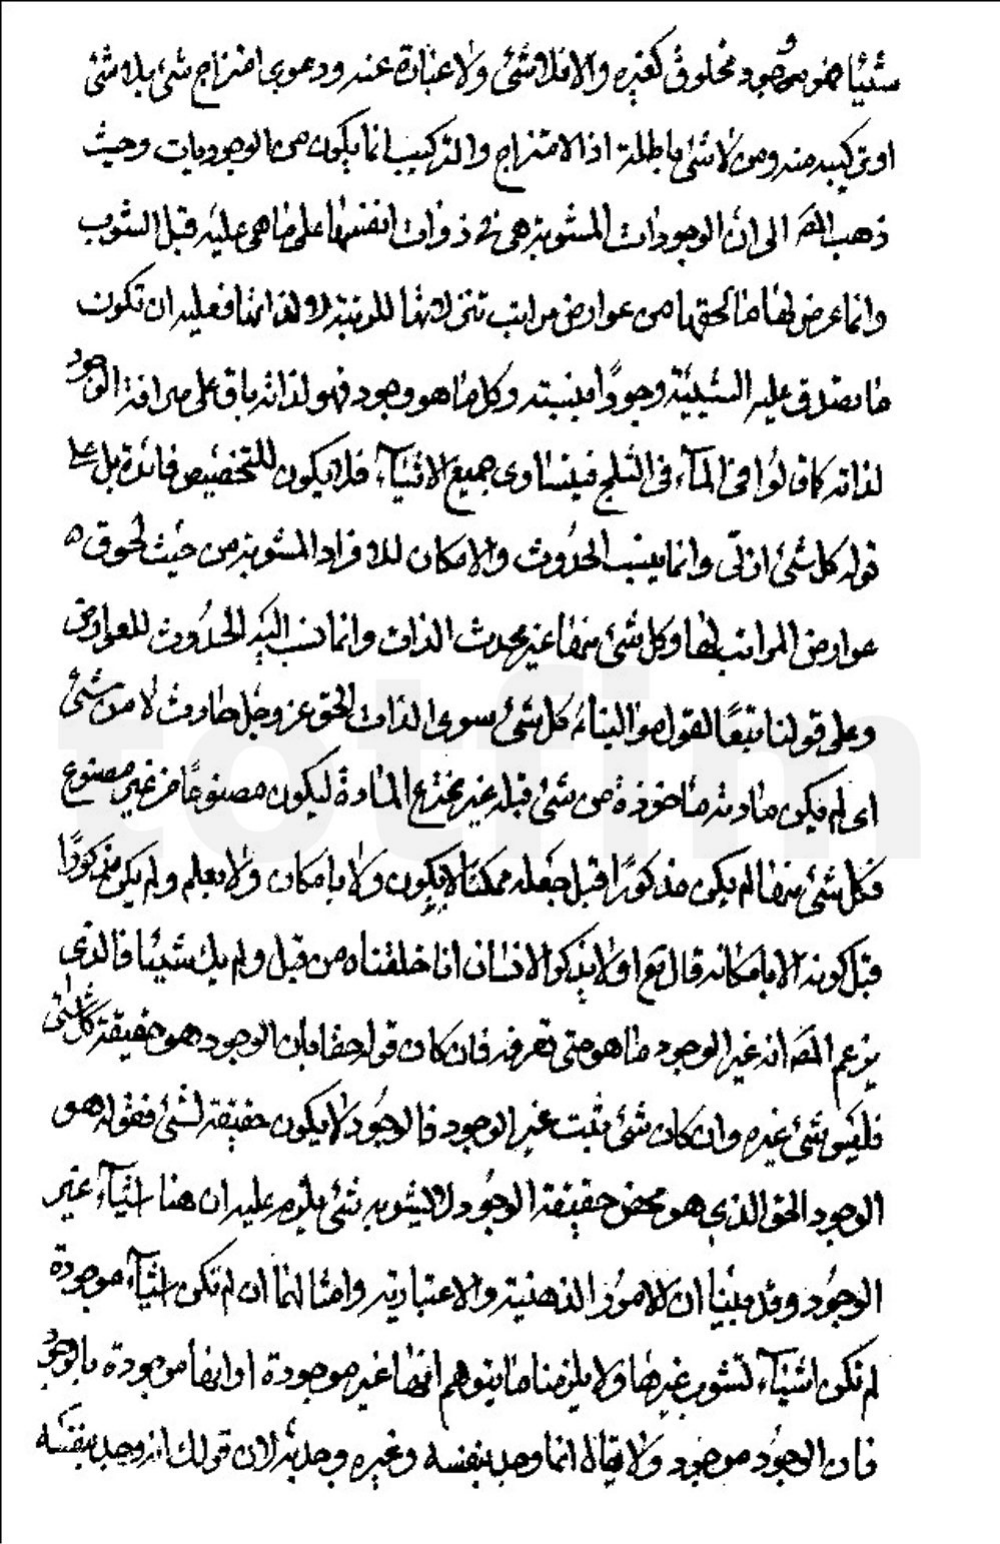 شيئا فهو موجود مخلوق كغيره والا فلا شئ ولا عبارة عنه ودعوى امتزاج شئ بلا شئ
او تركيبه منه ومن لا شئ باطلة اذ الامتزاج والتركيب انما يكون من الوجوديات وحيث
ذهب المصـ الى ان الوجودات المشوبة هي في ذوات انفسها على ما هي عليه قبل الشوب
وانما عرض لها ما لحقها من عوارض مراتب تنزلاتها للرتبة لا لذاتها فعليه ان تكون
ما يصدق عليه الشيئية وجودا بنسبته وكل ما هو وجود فهو لذاته باق على صرافة الوجود
لذاته كما قالوا في المآء في الثلج فيتساوى جميع الاشيآء فلا يكون للتخصيص فائدة بل على
قوله كل شئ ازلى وانما ينسب الحدوث والامكان للافراد المشوبة من حيث لحوق
عوارض المراتب لها وكل شئ منها غير محدث الذات وانما نسب اليه الحدوث للعوارض
وعلى قولنا تبعا لقول موالينا ع كل شئ سوى الذات الحق عز وجل حادث لا من شئ
اى لم يكن مادته ماخوذة من شئ قبله غير مخترع المادة ليكون مصنوعا من غير مصنوع
فكل شئ منها لم يكن مذكورا قبل جعله ممكنا لا بكون ولا بامكان ولا بعلم ولم يكن مذكورا
قبل كونه الا بامكانه قال تع اولا يذكر الانسان انا خلقناه من قبل ولم يك شيئا فالذى
يزعم المصـ انه غير الوجود ما هو حتى نعرفه فان كان قوله حقا بان الوجود هو حقيقة كل شئ
فليس شئ غيره وان كان شئ يثبت غير الوجود فالوجود لا يكون حقيقة لشئ فقوله هو
الوجود الحق الذي هو محض حقيقة الوجود لا يشوبه شئ يلزم عليه ان هنا اشيآء غير
الوجود وقد بينا ان الامور الذهنية والاعتبارية وامثالها ان لم تكن اشيآء موجودة
لم تكن اشيآء تشوب غيرها ولا يلزمنا ما يتوهم انها غير موجودة او انها موجودة بالوجود
فان الوجود موجود ولا يقال انما وجد بنفسه وغيره وجد به لان قولك انه وجد بنفسه